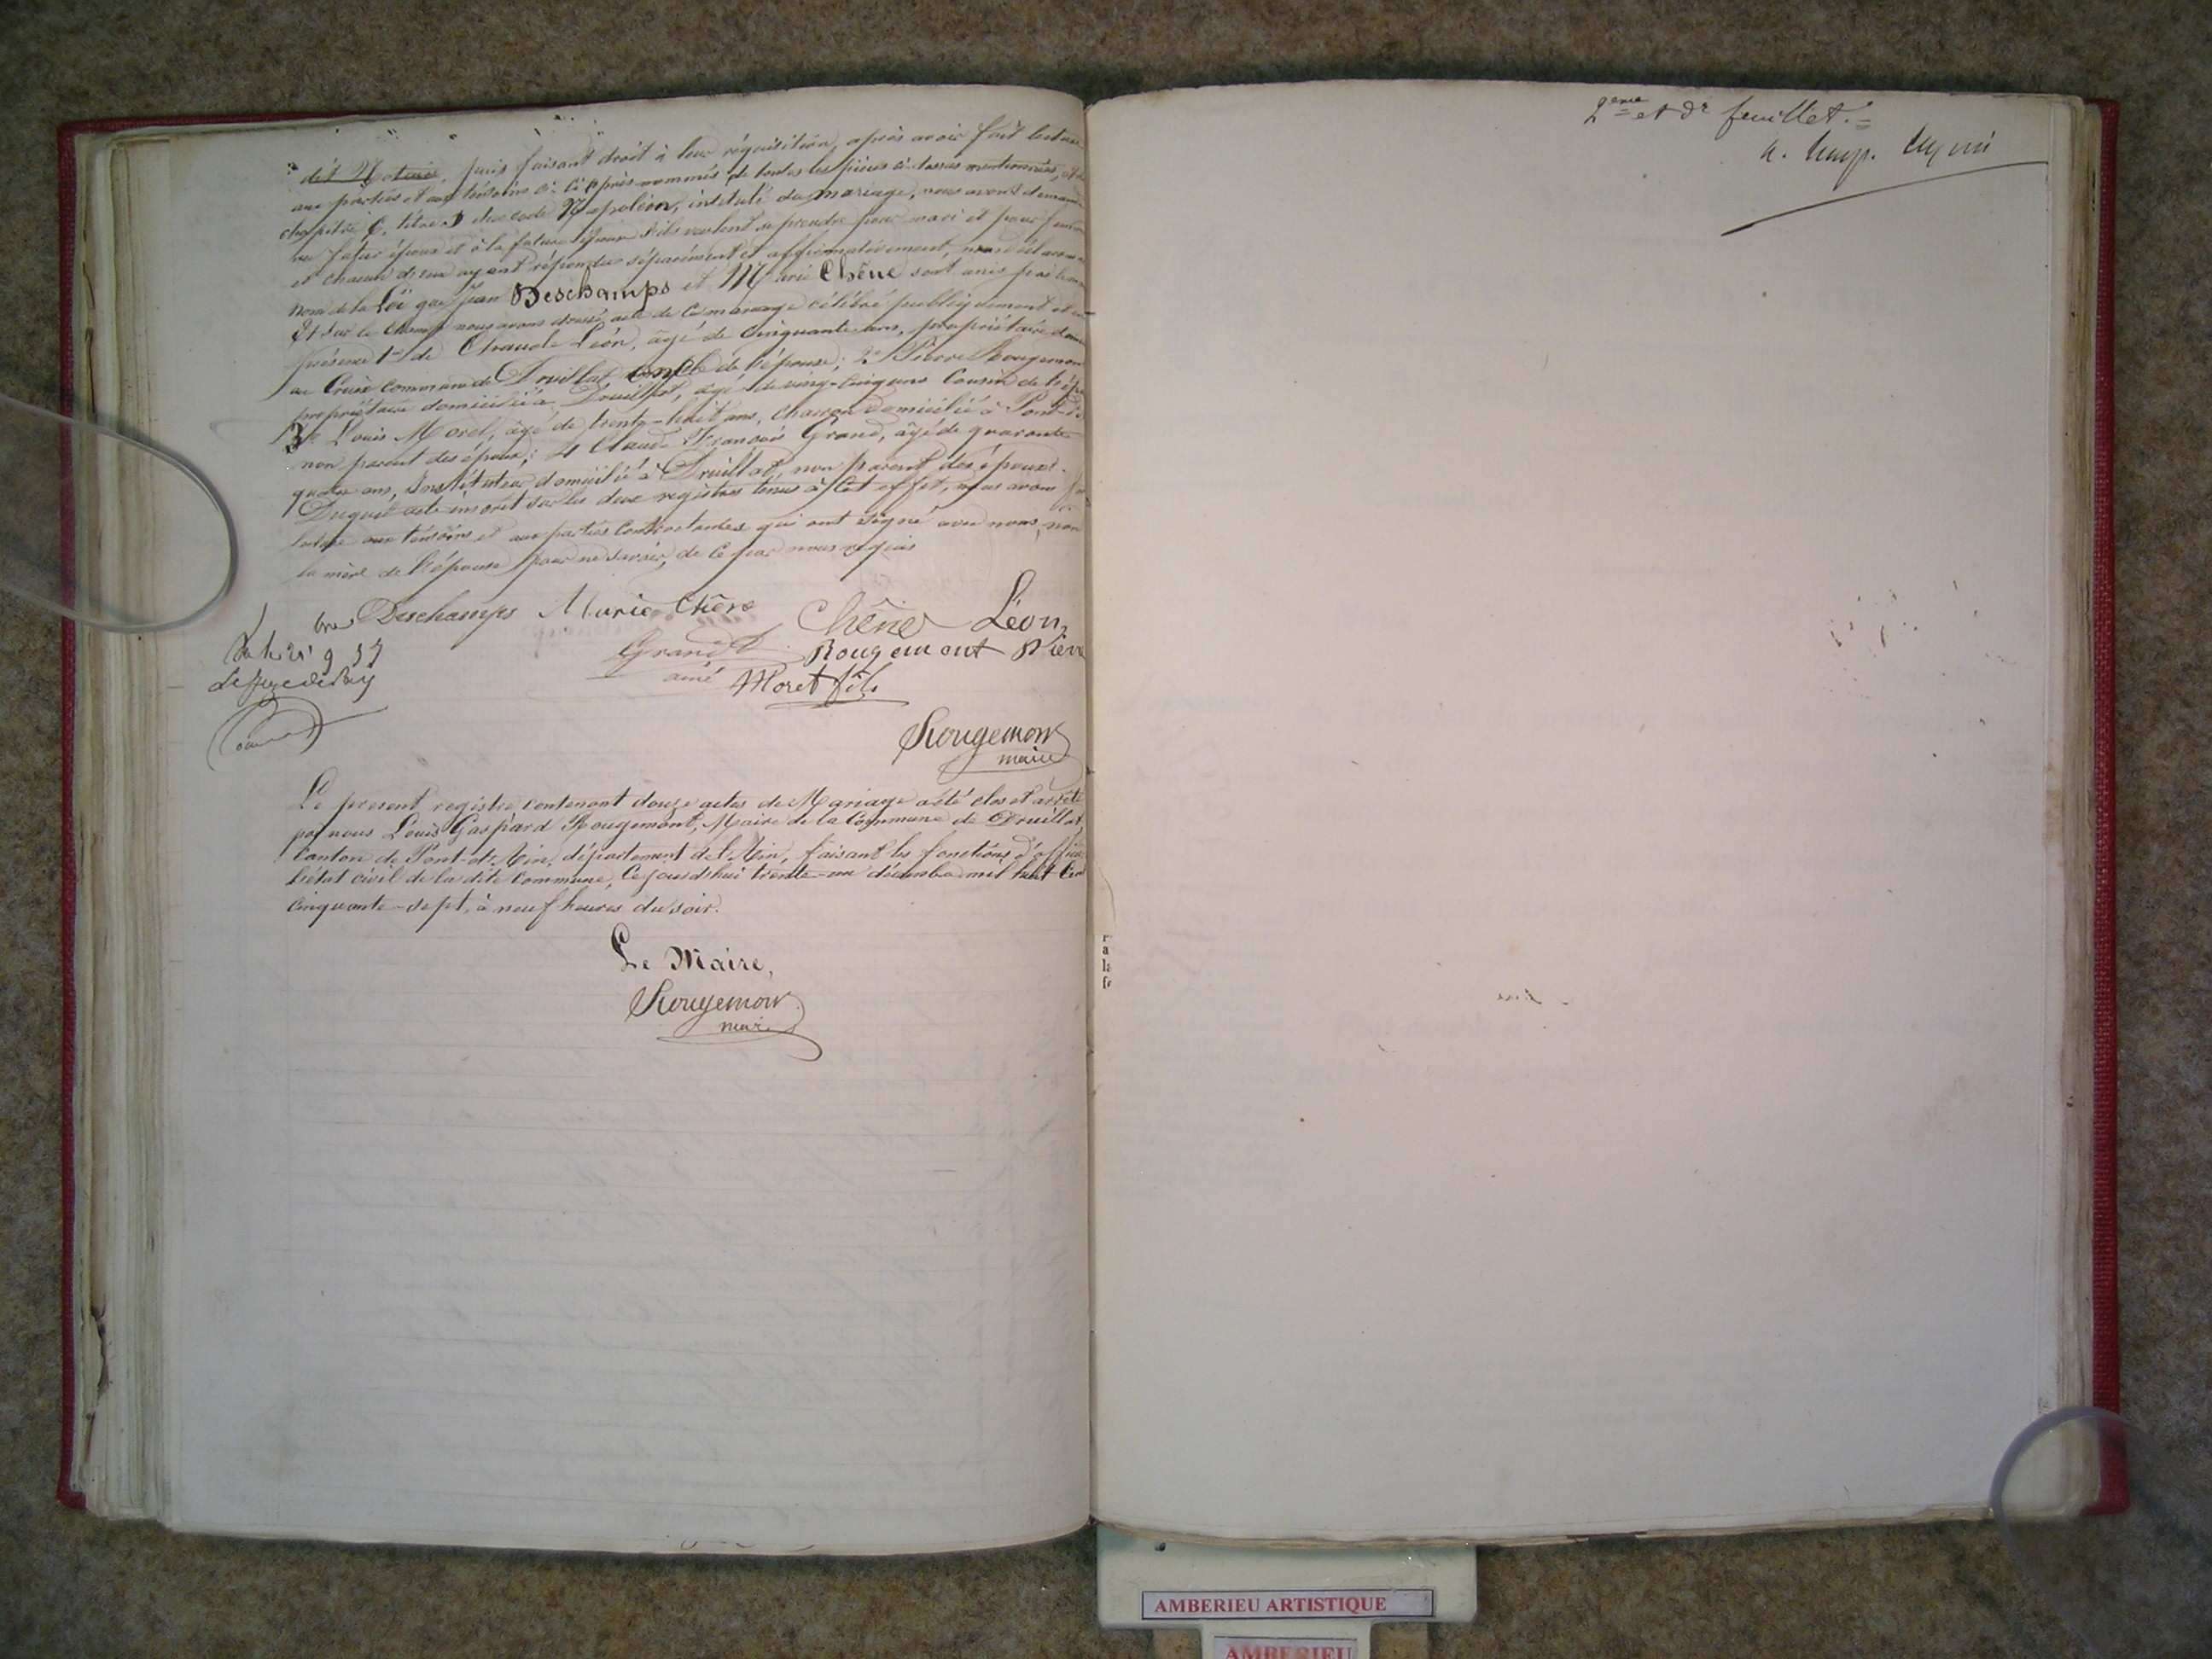 dit Notaire, puis faisant droit à leur réquisition, après avoir fait lecture
aux parties et aux témoins ci-après nommés de toutes les pièces ci-dessus mentionnées, et du
chapitre 6, titre 5 du code Napoléon, intitulé du mariage, nous avons demandé
au futur époux et à la future épouse s'ils veulent se prendre pour mari et pour femme
et chacun d'eux ayant répondu séparément et affirmativement, nous déclarons au
nom de la Loi que Jean Deschamps et Marie Chêne sont unis par le
Et sur le champ nous avons dressé acte de ce mariage célébré publiquement et en
présence 1° de Claude Léon, âgé de cinquante ans, propriétaire
au Cruix commune de Druillat oncle de l'épouse; 2° Pierre Rougemont
propriétaire domicilié à Druillat, âgé de vingt-cinq ans Cousin de l'
3° Louis Moret, âgé de trente-huit ans, domicilié à Pont-d'
non parent des époux; 4° Claude François Grand, âgé de quarante
quatre ans, Instituteur domicilié à Druillat, non parent des époux.
Duquel acte inscrit sur les deux registres tenus à cet effet, nous avons
lecture aux témoins et aux parties Contractantes qui ont signé avec nous, non
la mère de l'épouse pour ne savoir, de ce par nous requis
Deschamps Marie Chêne Chêne Léon
Grand Rougemont Pierre
ainé Moret fils
Le Juge de Paix
Rougemont
maire
Le present registre contenant douze actes de Mariage a été clos et arrêté
par nous Louis Gaspard Rougemont, Maire de la Commune de Druillat,
Canton de Pont-d'Ain, département de l'Ain, faisant les fonctions d'officier
l'état civil de la dite Commune, Ce jourd'hui trente-un décembre mil huit Cent
cinquante-sept, à neuf heures du soir.
Le Maire,
Rougemont
maire
2eme et dr feuillet.
AMBERIEU ARTISTIQUE
AMBERIEU